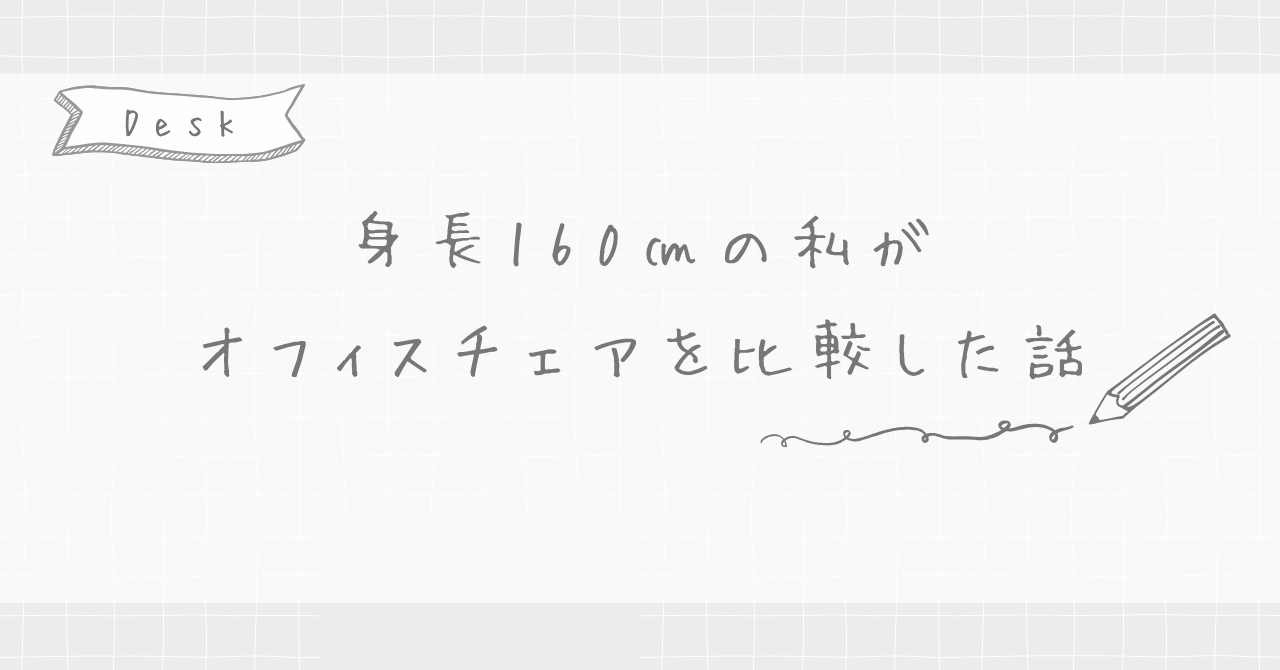 Desk
身長160cmの私が
オフィスチェアを比較した話